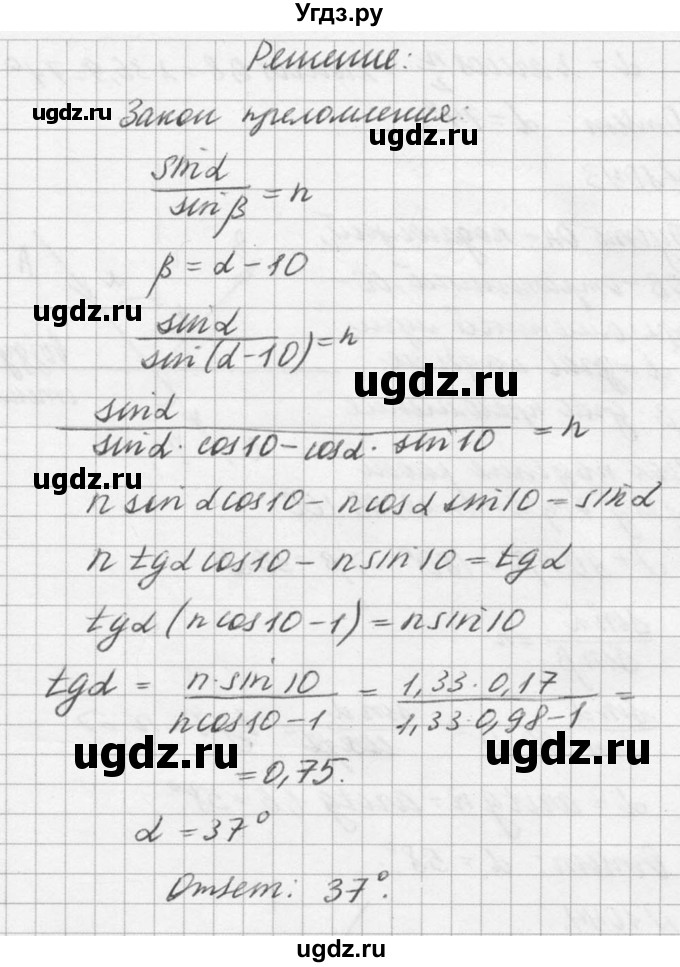 Угдз.ру
Решение:
ugdz.ru Закон преломления: ugdz.ru
sinα / sinβ = n
β = α - 10
ugdz.ru
sinα / sin(α-10) = n
ugdz.ru
sinα / sinα · cos10 - cosα · sin10 = n
ugdz.ru
n sinα cos10 - n cosα sin10 = sinα
n tgα cos10 - n sin10 = tgα
tgα (n cos10 - 1) = n sin10
tgα = n·sin10 / n cos10 - 1 = 1,33·0,17 / 1,33·0,98-1 =
ugdz.ru ugdz.ru
= 0,75.
α = 37°
Ответ: 37°.
ugdz.ru